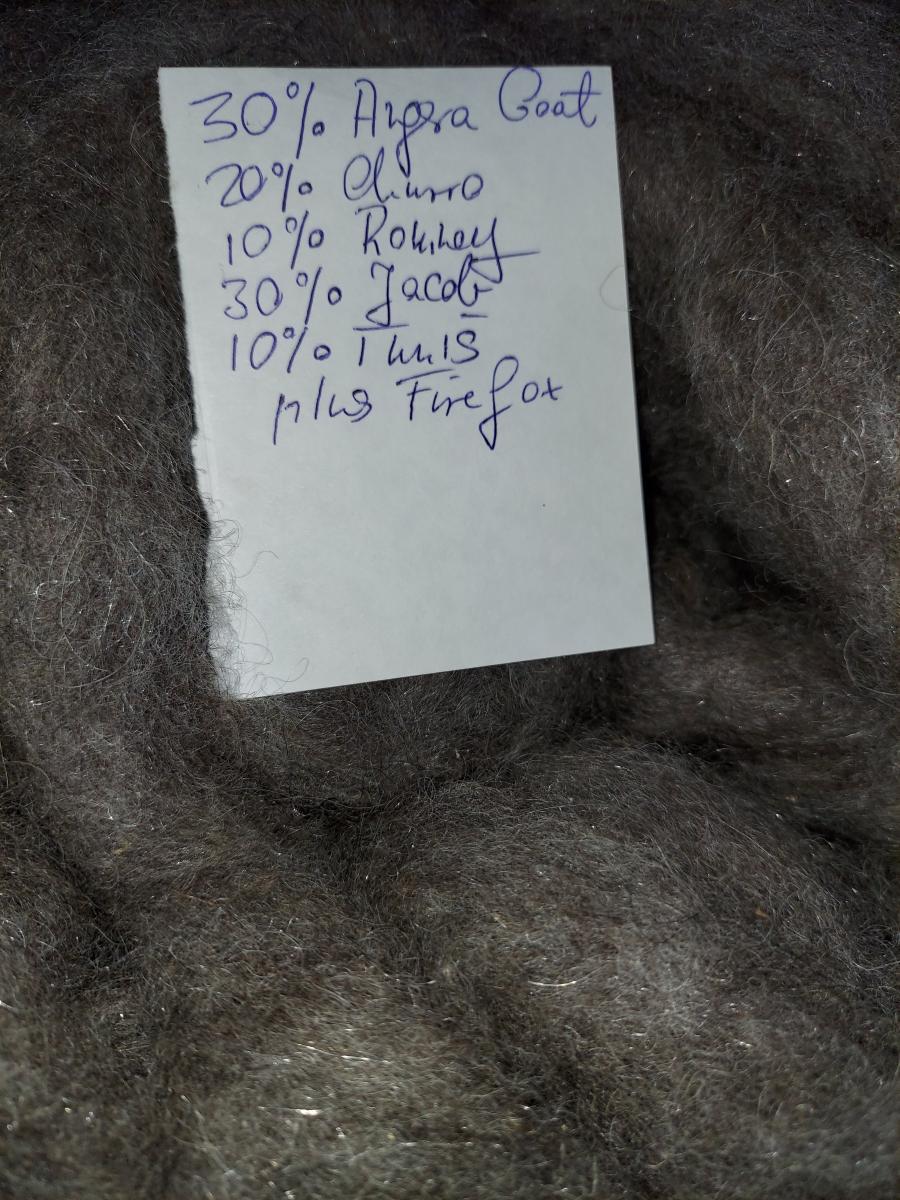 30% Angora Goat
20% Churro
10% Romney
30% Jacob
10% Tunis
plus Firefox